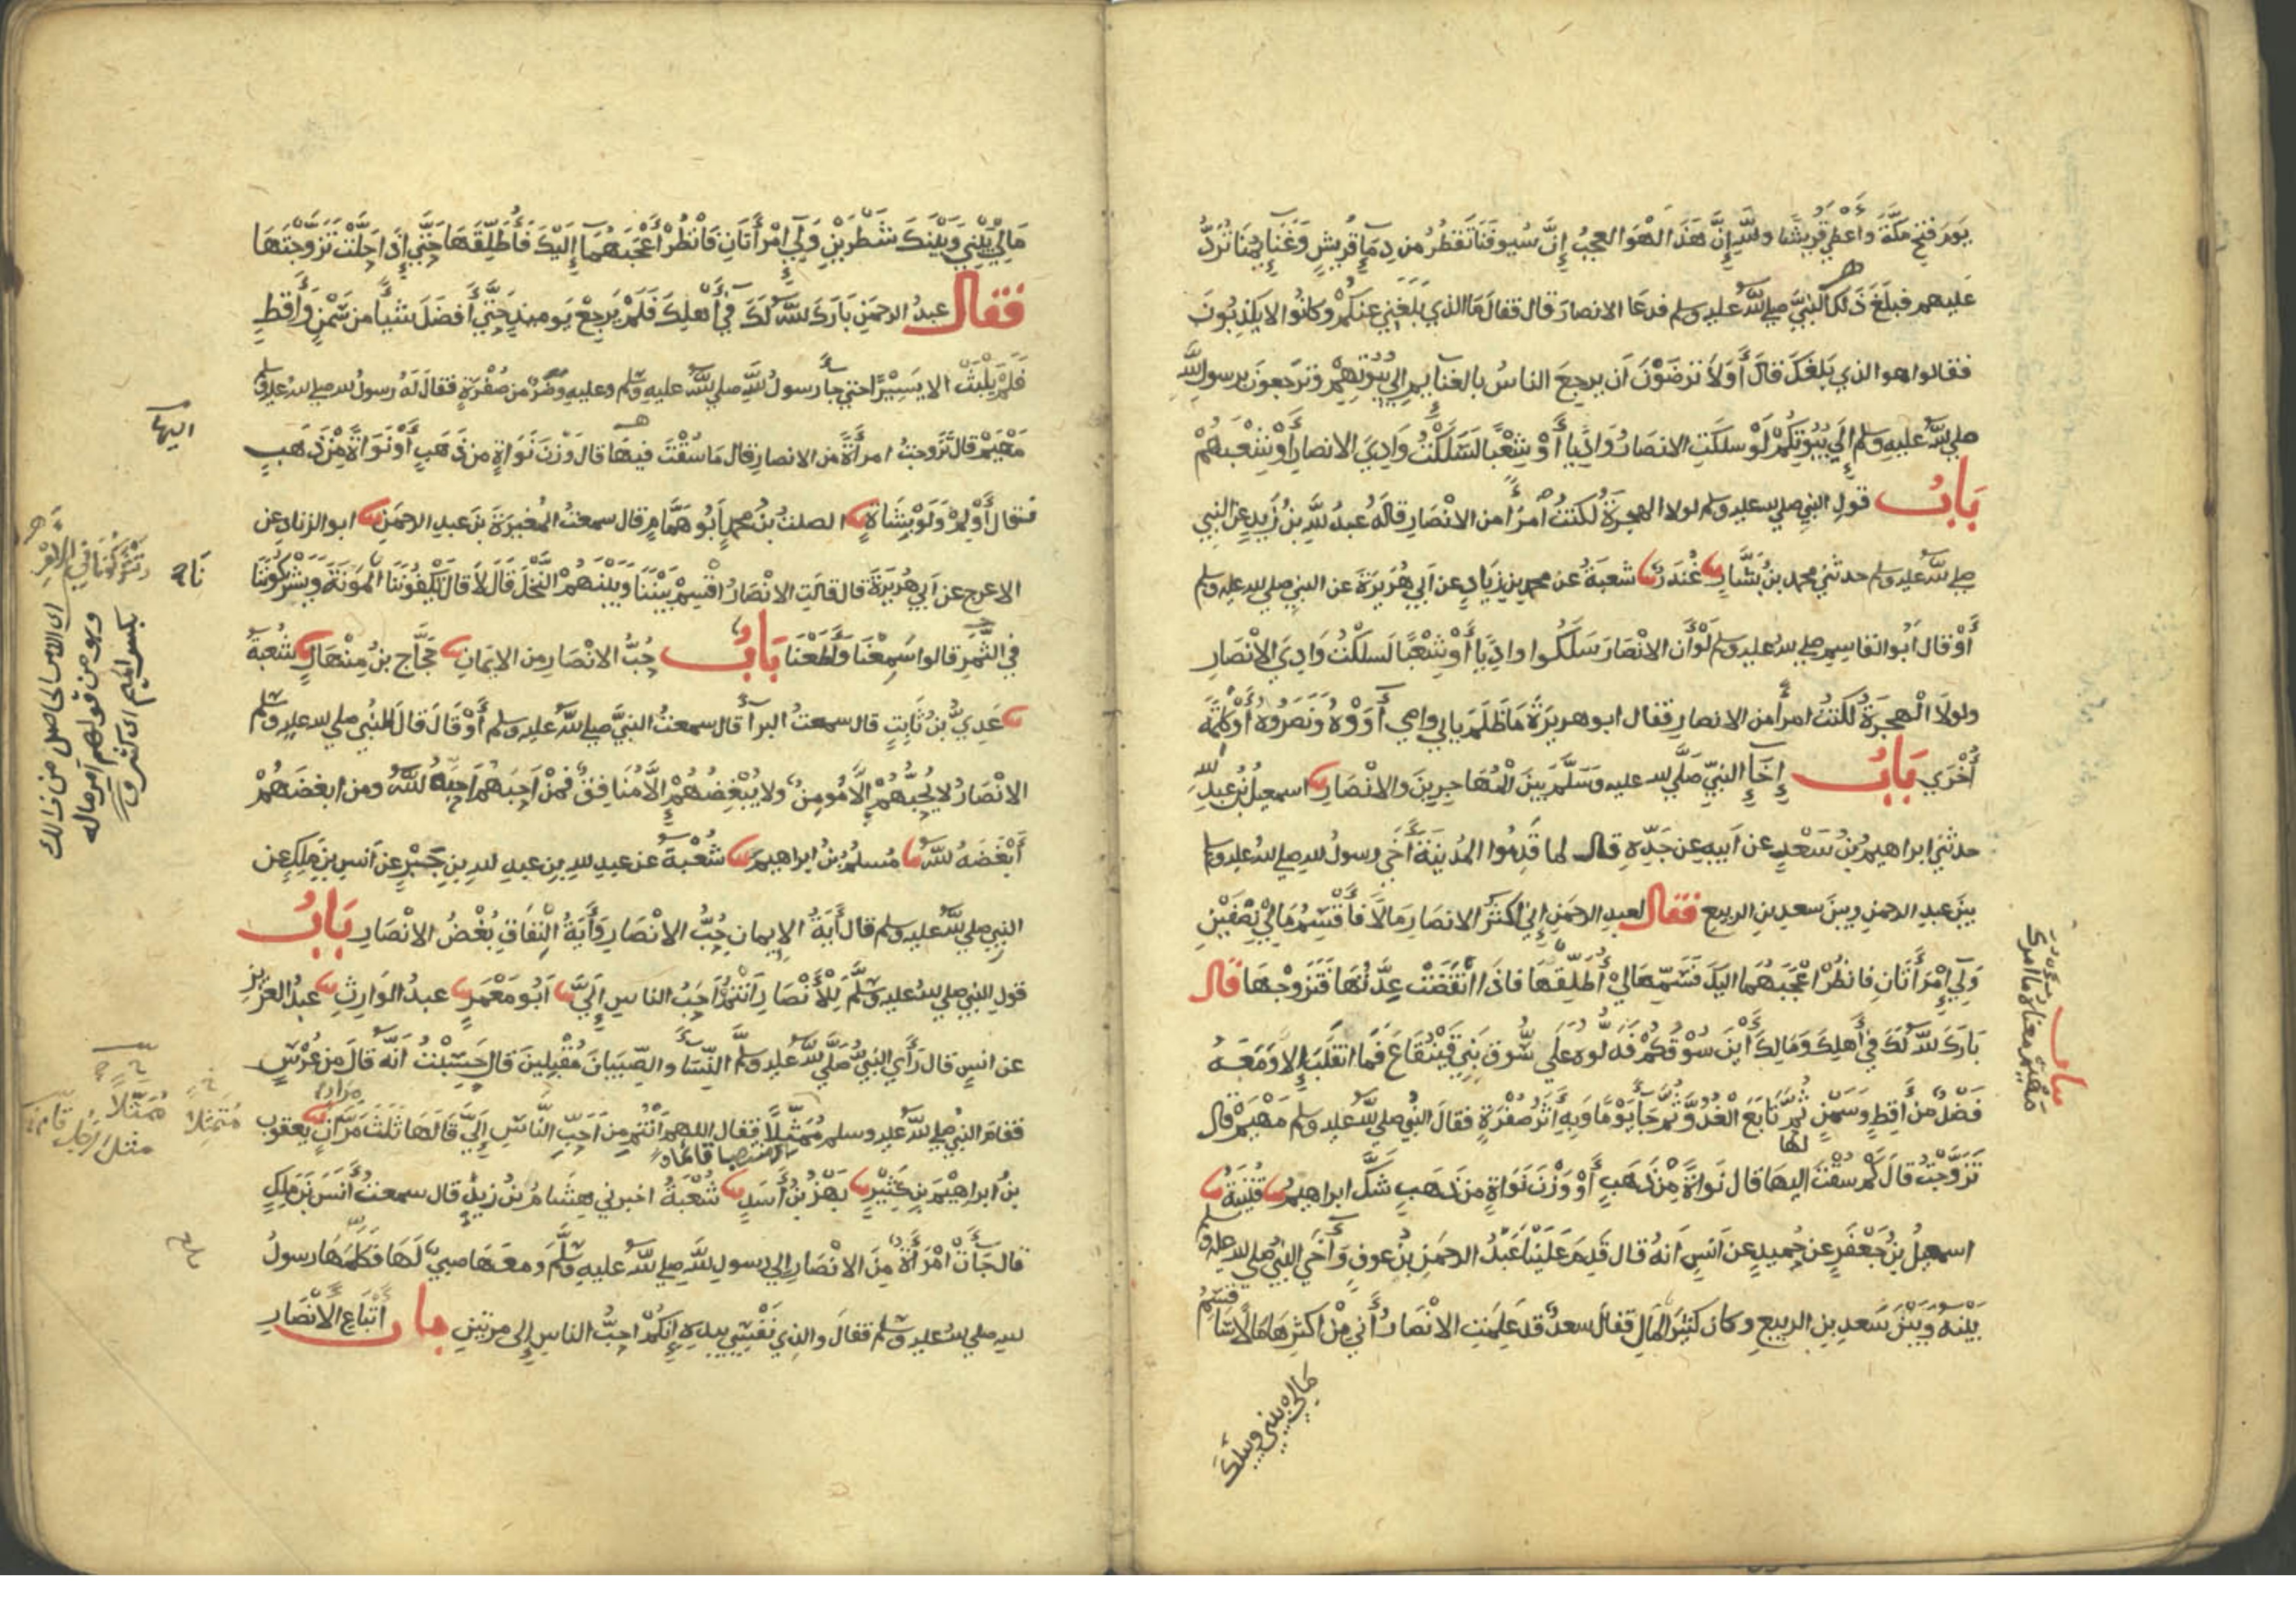 يَوْمَ فَتْحِ مَكَّةَ وَأَعْطَى قُرَيْشًا وَاللَّهِ إِنَّ هَذَا لَهُوَ العجبُ إِنَّ سُيُوفَنَا تَقْطُرُ من دِمَاءِ قُرَيْشٍ وَغَنَايِمُنَا تُرَدُّ
عَليهم فبَلَغَ ذَلكَ النبيَّ صلى اللهُ عليه وسلم فدعَا الانصارَ قال فقالَ مَا الذي بَلَغَنِي عنكُمْ وكانُوا لا يَكذِبُونَ
فقالوا هو الذي بَلَغَكَ قالَ أَوَلاَ تَرضَوْنَ اَن يرجِعَ الناسُ بالغنايمِ إِلى بُيُوتِهِمْ وَتَرجعونَ برسولِ اللَّهِ
صلى اللهُ عليه وسلم إِلَى بُيُوتِكُمْ لَوْ سلكَتِ الانصَارُ وَادِيًا أَوْ شِعْبًا لَسَلَكْتُ وَادِيَ الانصارِ أَوْ شِعْبَهُمْ
بَابُ قولِ النبيِّ صلى الله عليه وسلم لولا الهجرَةُ لكنتُ امرأً من الانْصَارِ قالَهُ عبدُ اللَّهِ بنُ زَيدٍ عن النبي
صلى اللهُ عليه وسلم حدثني محمد بنُ بَشَّارٍ غُنْدَرٌ شعبَةُ عن محمدِ بنِ زِيَادٍ عن اَبي هُرَيرَةَ عن النبيِّ صلى الله عليه وسلم
أَوْ قال اَبُو القاسِمِ صلى الله عليه وسلم لَوْ أَن الانْصَارَ سَلَكُوا وادِيًا أَوْ شِعْبًا لَسلكْتُ وَادِيَ الانْصَارِ
ولولاَ الْهِجرَةُ لكُنتُ امرأً من الانصارِ فقال ابو هريرَةَ مَا ظَلَمَ بابي وامي آوَوْهُ وَنَصَرُوهُ أَوْ كَلِمَةً
أُخْرَى بَابُ إِخَاءِ النبيِّ صَلَّى الله عليه وسَلَّمَ بينَ الْمُهَاجِرِينَ والانْصَارِ اسمعيلُ بنُ عبدِ الله
حدثني ابراهيمُ بنُ سَعْدٍ عن اَبيهِ عن جَدِّهِ قال لما قَدِمُوا المدِينَةَ آخَى رسولُ الله صلى اللهُ عليه وسلم
بينَ عبدِ الرحمنِ وبينَ سعدِ بنِ الربيعِ فقال لعبدِ الرحمَنِ إِني اكثرُ الانصَارِ مَالًا فَأَقْسِمُ مَالِي نِصْفَيْنِ
وَلِي امْرَأَتَانِ فانظُرْ اعْجَبَهُمَا اليكَ فَسَمِّهَا لِي أُطَلِّقْهَا فاذَا انقَضَتْ عِدَّتُهَا فَتَزَوجْهَا قال
بَارَكَ اللهُ لَكَ في أَهلِكَ وَمَالِكَ أَيْنَ سُوقُكُمْ فَدَلُّوهُ عَلَى سُوقِ بَنِي قَيْنُقَاعَ فَمَا انقَلَبَ إلا وَمَعَهُ
فَضْلٌ من أَقِطٍ وَسَمْنٍ ثُمَّ تَابَعَ الْغُدُوَّ ثُمَّ جَاءَ يَوْمًا وَبِهِ أَثَرُ صُفْرَةٍ فقالَ النبيُّ صلى اللهُ عليه وسلم مَهْيَمْ قال
لها
تَزَوَّجْتُ قالَ كَمْ سُقْتَ اليهَا قال نَوَاةً مِنْ ذَهَبٍ أَوْ وَزْنَ نَوَاةٍ مِن ذهبٍ شَكَّ ابراهيمُ قُتَيْبَةُ
اسمعيلُ بنُ جَعْفَرٍ عن حُميدٍ عن اَنسٍ اَنهُ قال قَدِمَ عَلَيْنَا عَبْدُ الرحمَنِ بنُ عوفٍ وَآخَى النبيُّ صلى الله عليه وسلم
بَيْنَهُ وَبَيْنَ سَعدِ بنِ الربيعِ وكان كثيرَ المالِ فقالَ سعدٌ قد عَلِمَتِ الانْصَارُ أَني مِنْ اكثرِهَا مَالًا سَأَقْسِمُ
مالي بيني وبينك
مَهْيَمْ معناه ما امرك
مَالِي بَيْنِي وَبَيْنَكَ شَطْرَيْنِ وَلِي امْرَأَتَانِ فَانْظُرْ أَعْجَبَهُمَا إِلَيْكَ فَأُطَلِّقَهَا حَتَّى إِذَا حَلَّتْ تَزَوَّجْتَهَا
فقال عبدُ الرحمَنِ بَارَكَ اللهُ لَكَ في أَهلِكَ فَلَمْ يَرجِعْ يَومَيِذٍ حَتَّى أَفضَلَ شيأً من سَمْنٍ وَأَقِطٍ
فَلَمْ يَلْبَثْ الا يَسِيْرًا حتى جاءَ رسولَ اللَّهِ صلى اللهُ عليه وسلم وعليهِ وَضَرٌ من صُفْرَةٍ فقالَ لَهُ رسولُ الله صلى الله عليه وسلم
مَهْيَمْ قال تَزَوجتُ امرأَةً من الانصارِ قال مَا سُقْتَ فيهَا قال وَزْنَ نَوَاةٍ من ذَهَبٍ أَوْ نَوَاةً مِنْ ذَهَبٍ
فقال أَوْلِمْ وَلَوْ بِشَاةٍ الصلتُ بنُ محمدٍ اَبُو هَمَّامٍ قال سمعتُ المُغيرَةَ بنَ عبدِ الرحمَنِ ابو الزناد عن
الاعرج عن اَبي هُرَيرَةَ قال قالَتِ الانْصَارُ اقْسِمْ بَيْنَنَا وَبَيْنَهُمْ النَّخْلَ قَالَ لاَ قالَ تَكْفُونَنَا المَؤنَةَ وَتَشْرَكُونَنَا
في الثَّمَرِ قالوا سَمِعْنَا وَأَطَعْنَا بَابُ حُبُّ الانْصَارِ من الايمَانِ حَجَّاجُ بنُ مِنْهَالٍ شُعْبَةُ
عَدِيُّ بنُ ثَابِتٍ قال سمعتُ البرآءَ قال سمعتُ النبيَّ صلى اللهُ عليه وسلم أَوْ قَالَ قالَ النبي صلى الله عليه وسلم
الانْصَارُ لا يُحِبُّهُمْ إِلَّا مُومِنٌ ولا يُبْغِضُهُمْ إِلَّا مُنَافِقٌ فَمَنْ اَحَبَّهُمْ اَحَبَّهُ اللهُ ومن ابغضَهُمْ
أَبْغَضَهُ اللهُ مُسلمُ بنُ ابراهيمَ شُعْبَةُ عن عبدِ اللهِ بنِ عبدِ اللهِ بنِ جَبْرٍ عن اَنسِ بنِ مَلِكٍ عن
النبيِّ صلى اللهُ عليه وسلم قال آيَةُ الايمانِ حُبُّ الانْصَارِ وَآيَةُ النِّفَاقِ بُغْضُ الانْصَارِ بَابُ
قولِ النبي صلى الله عليه وسلم لِلْأَنْصَارِ اَنْتُمْ اَحَبُّ الناسِ إِلَيَّ اَبُو مَعْمَرٍ عبدُ الوَارِثِ عبدُ العزيزِ
عن انَسٍ قال رَأَى النبيُّ صَلَّى اللهُ عليه وسلم النِّسَاءَ والصِّبيَانَ مُقْبِلِينَ قال حَسِبْتُ اَنَّهُ قالَ من عُرْسٍ
فقامَ النبيُّ صلى اللهُ عليه وسلم مُمَثِّلًا فقال اللهم اَنْتُم مِن اَحَبِّ النَّاسِ إِلَيَّ قالَهَا ثَلَثَ مَرَّاتٍ يعقوب
منتصبا قائما
بنُ ابراهِيْمَ بنِ كَثِيْرٍ بَهْزُ بنُ أَسَدٍ شُعْبَةُ اخبرني هِشَامُ بنُ زيدٍ قال سمعتُ أَنَسَ بنَ مَلِكٍ
قال جَاءَتْ امْرَأَةٌ مِنَ الانْصَارِ إِلى رسولِ اللَّهِ صلى اللهُ عليه وسلَّمَ ومعَهَا صبيٌّ لَهَا فَكَلَّمَهَا رسولُ
الله صلى اللهُ عليه وسلم فقالَ والذِي نَفْسِي بيدِهِ إِنكُمْ احبُّ الناسِ إِلى مرتين باب أَتْبَاعِ الْأَنْصَارِ
اليها
بكسر الميم اى كثر
وهو من قولهم امر ماله
اى الامر الحاصل من ذلك